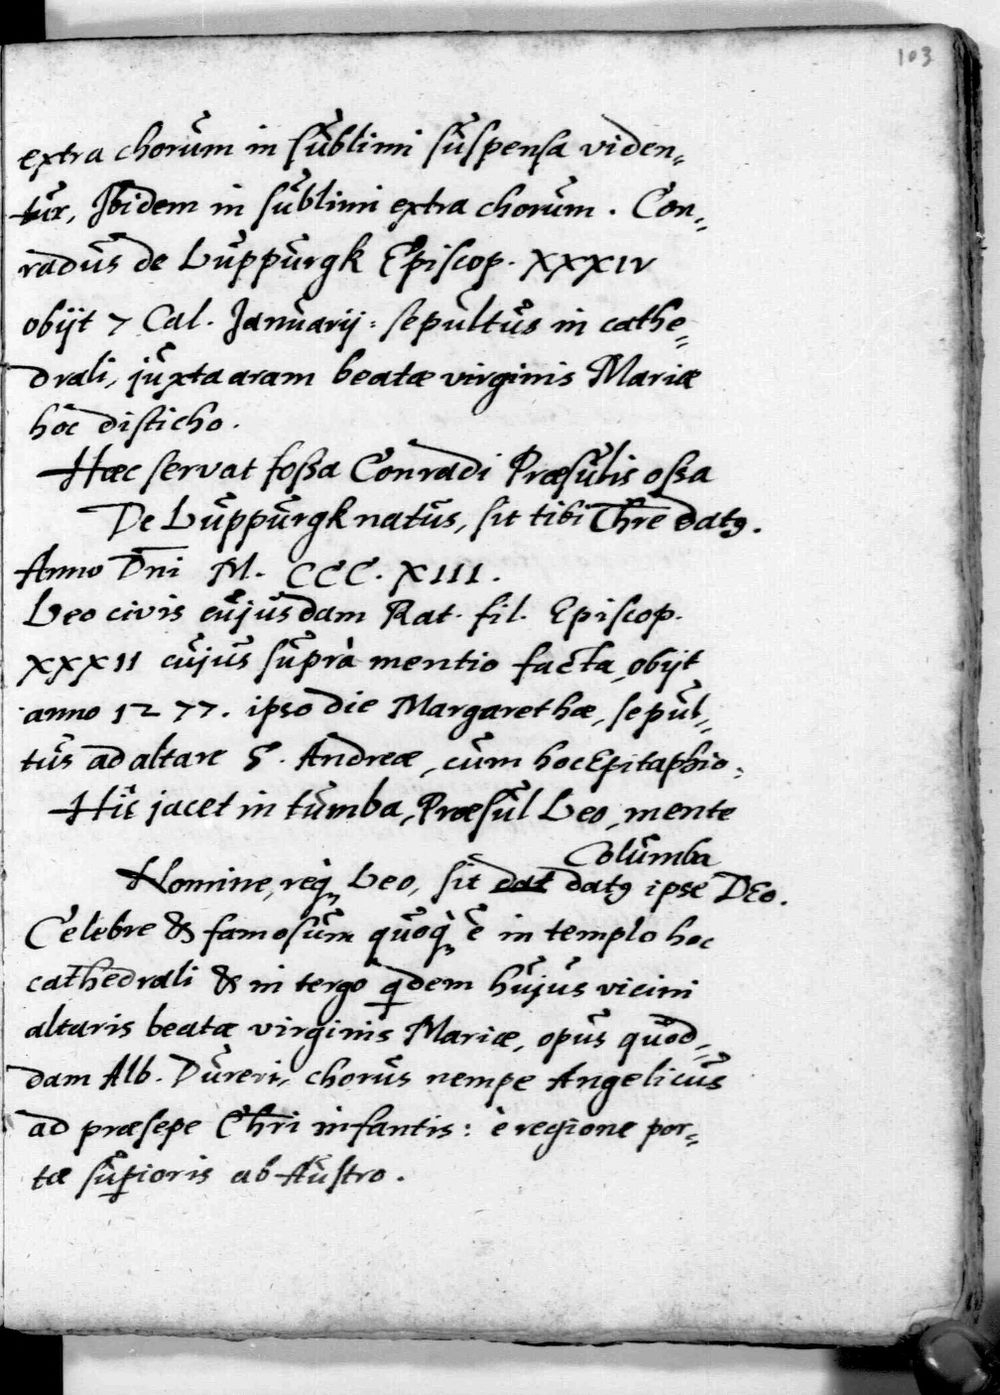 103
extra chorum in sublimi suspensa viden⸗
tur, Ibidem in sublimi extra chorum. Con⸗
radus de Luppurgk Episcop. XXXIV
obijt 7 Cal. Januarij: sepultus in cathe⸗
drali, juxta aram beatæ virginis Mariæ
hôc disticho.
Hæc servat foßa Conradi Præsulis oßa
De Luppurgk natus, sit tibi Chr̄e datꝯ.
Anno Dn̄i M. CCC. XIII.
Leo civis cujusdam Rat. fil. Episcop.
XXXII cujus suprà mentio facta, obijt
anno 1277. ipso die Margarethæ, sepul⸗
tus ad altare S. Andreæ, cum hoc Epitaphio:
Hîc jacet in tumba, Præsul Leo, mente
Columba
Nomine, reqꝫ Leo, sit dat datꝯ ipse DEo.
Celebre & famosum quoqꝫ ē in templo hoc
cathedrali & in tergo qͥdem hujus vicini
altaris beatæ virginis Mariæ, opus quod⸗
dam Alb. Dureri, chorus nempe Angelicus
ad præsepe Chr̄i infantis: è regione por⸗
tæ suꝑioris ab Austro.